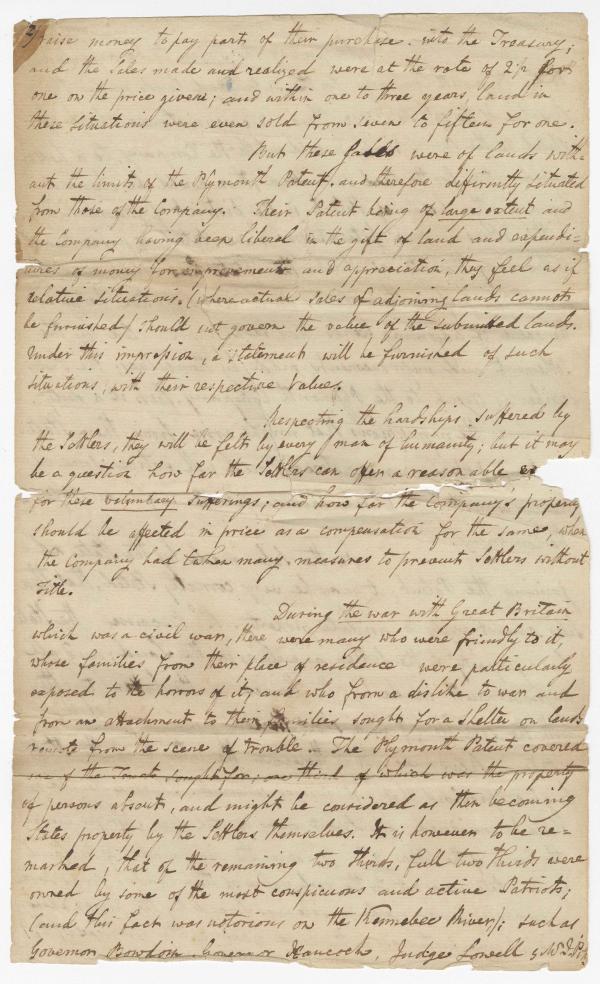 2/
raise money to pay part of their purchase into the Treasury;
and the Sales made and realized were at the rate of 2 1/2 for
one on the price given; and within one to three years, land in
these situations were even sold from seven to fifteen for one.
But these sales were of lands with-
out the limits of the Plymouth Patent, and therefore differently situated
from those of the Company. Their Patent being of large extent and
the Company having been liberal in the gift of land and expendi-
tures of money for improvement and appreciation, they feel as if
relative situations, (where actual sales of adjoining lands cannot
be furnished) should not govern the value of the submitted lands.
Under this impression, a statement will be furnished of such
situations, with their respective Values.
Respecting the hardships suffered by
the Settlers, they will be felt by every man of humanity; but it may
be a question how far the Settlers can offer a reasonable
for these voluntary sufferings; and how far the Company's property
should be affected in price as a compensation for the same, when
the Company had taken many measures to prevent Settlers without
Title.
During the war with Great Britain
which was a civil war, there were many who were friendly to it,
whose families from their place of residence were particularly
exposed to the horrors of it; and who from a dislike to war and
from an attachment to their families sought for a shelter on lands
remote from the scene of trouble. The Plymouth Patent covered
one of the Tracts sought for; one third of which was the property
of persons absent, and might be considered as then becoming
States property by the Settlers themselves. It is however to be re=
marked, that of the remaining two thirds, full two thirds were
owned by some of the most conspicuous and active Patriots;
(and this fact was notorious on the Kennebec River); such as
Governor Bowdoin, Governor Hancock, Judge Lowell